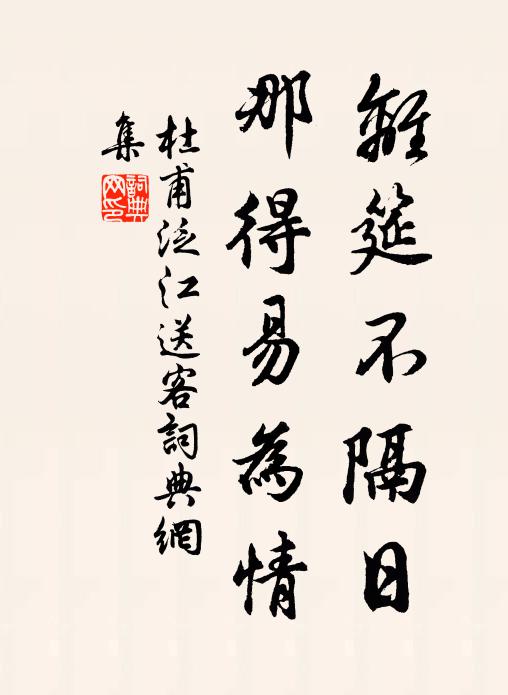 離筵不隔日
那得易為情
杜甫泛江送客詞典網
集
詞典網印